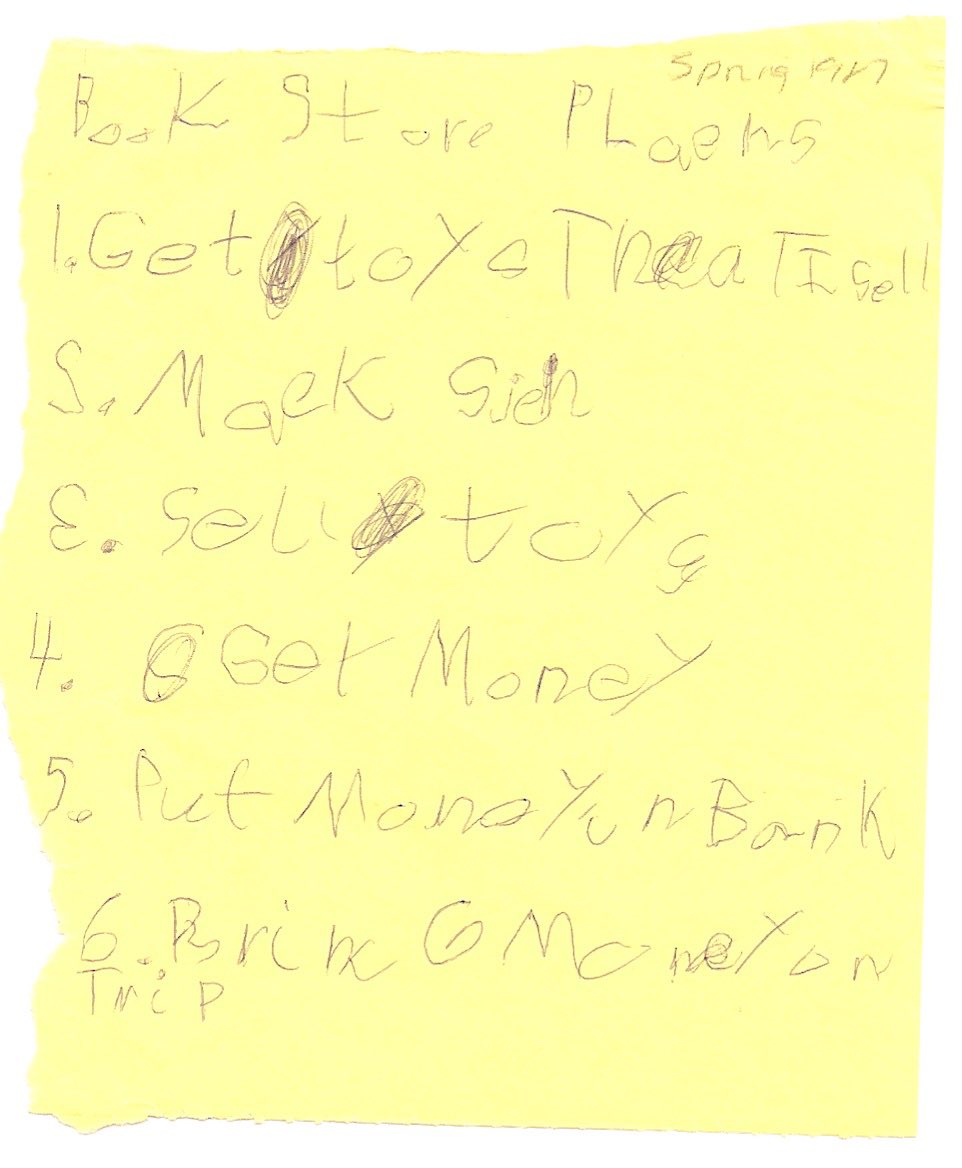 Spring
Book Store PLaens
1.Get toys ThaT I sell
S. Maek Sien
3. Sell toys
4. Get Money
5. Put Money in Bank
6. Brink G Money on
Trip